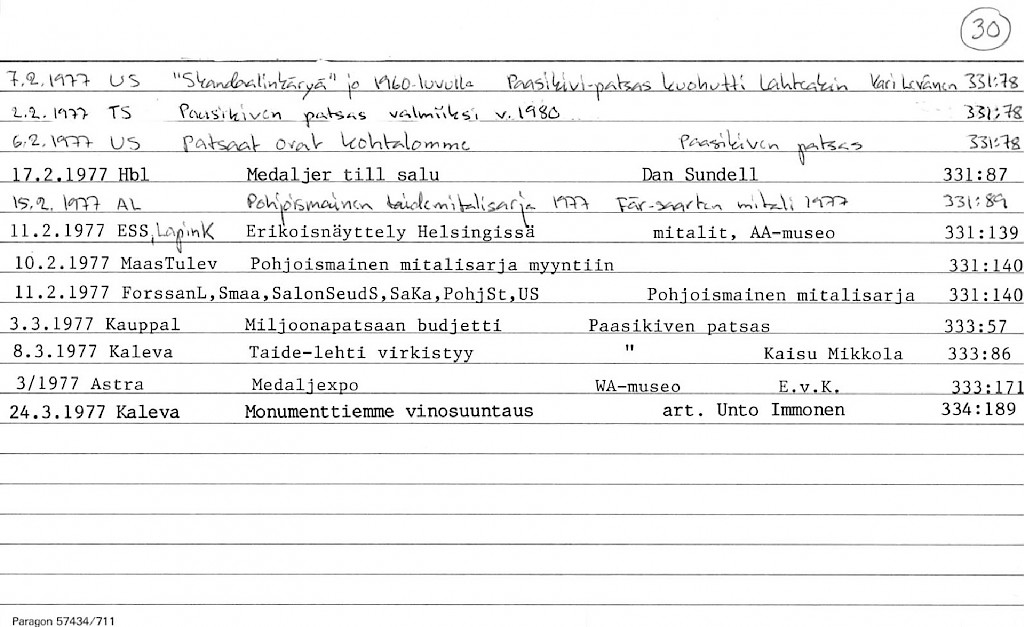 30
7.2.1977 US "Skandaalinkäryä" jo 1960-luvulla Paasikivi-patsas kuohutti Lahteakin Kari Levänen 331:78
2.2.1977 TS Paasikiven patsas valmiiksi v. 1980 331:78
6.2.1977 US Patsaat ovat kohtalomme Paasikiven patsas 331:78
17.2.1977 Hbl Medaljer till salu Dan Sundell 331:87
15.2.1977 AL Pohjoismainen taidemitalisarja 1977 Fär-saarten mitali 1977 331:89
11.2.1977 ESS, LapinK Erikoisnäyttely Helsingissä mitalit, AA-museo 331:139
10.2.1977 MaasTulev Pohjoismainen mitalisarja myyntiin 331:140
11.2.1977 ForssanL,Smaa,SalonSeudS,SaKa,PohjSt,US Pohjoismainen mitalisarja 331:140
3.3.1977 Kauppal Miljoonapatsaan budjetti Paasikiven patsas 333:57
8.3.1977 Kaleva Taide-lehti virkistyy " Kaisu Mikkola 333:86
3/1977 Astra Medaljexpo WA-museo E.v.K. 333:171
24.3.1977 Kaleva Monumenttiemme vinosuuntaus art. Unto Immonen 334:189
Paragon 57434/711